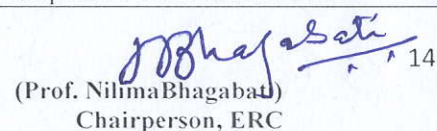 NBhagabati
14
(Prof. NilimaBhagabati)
Chairperson, ERC